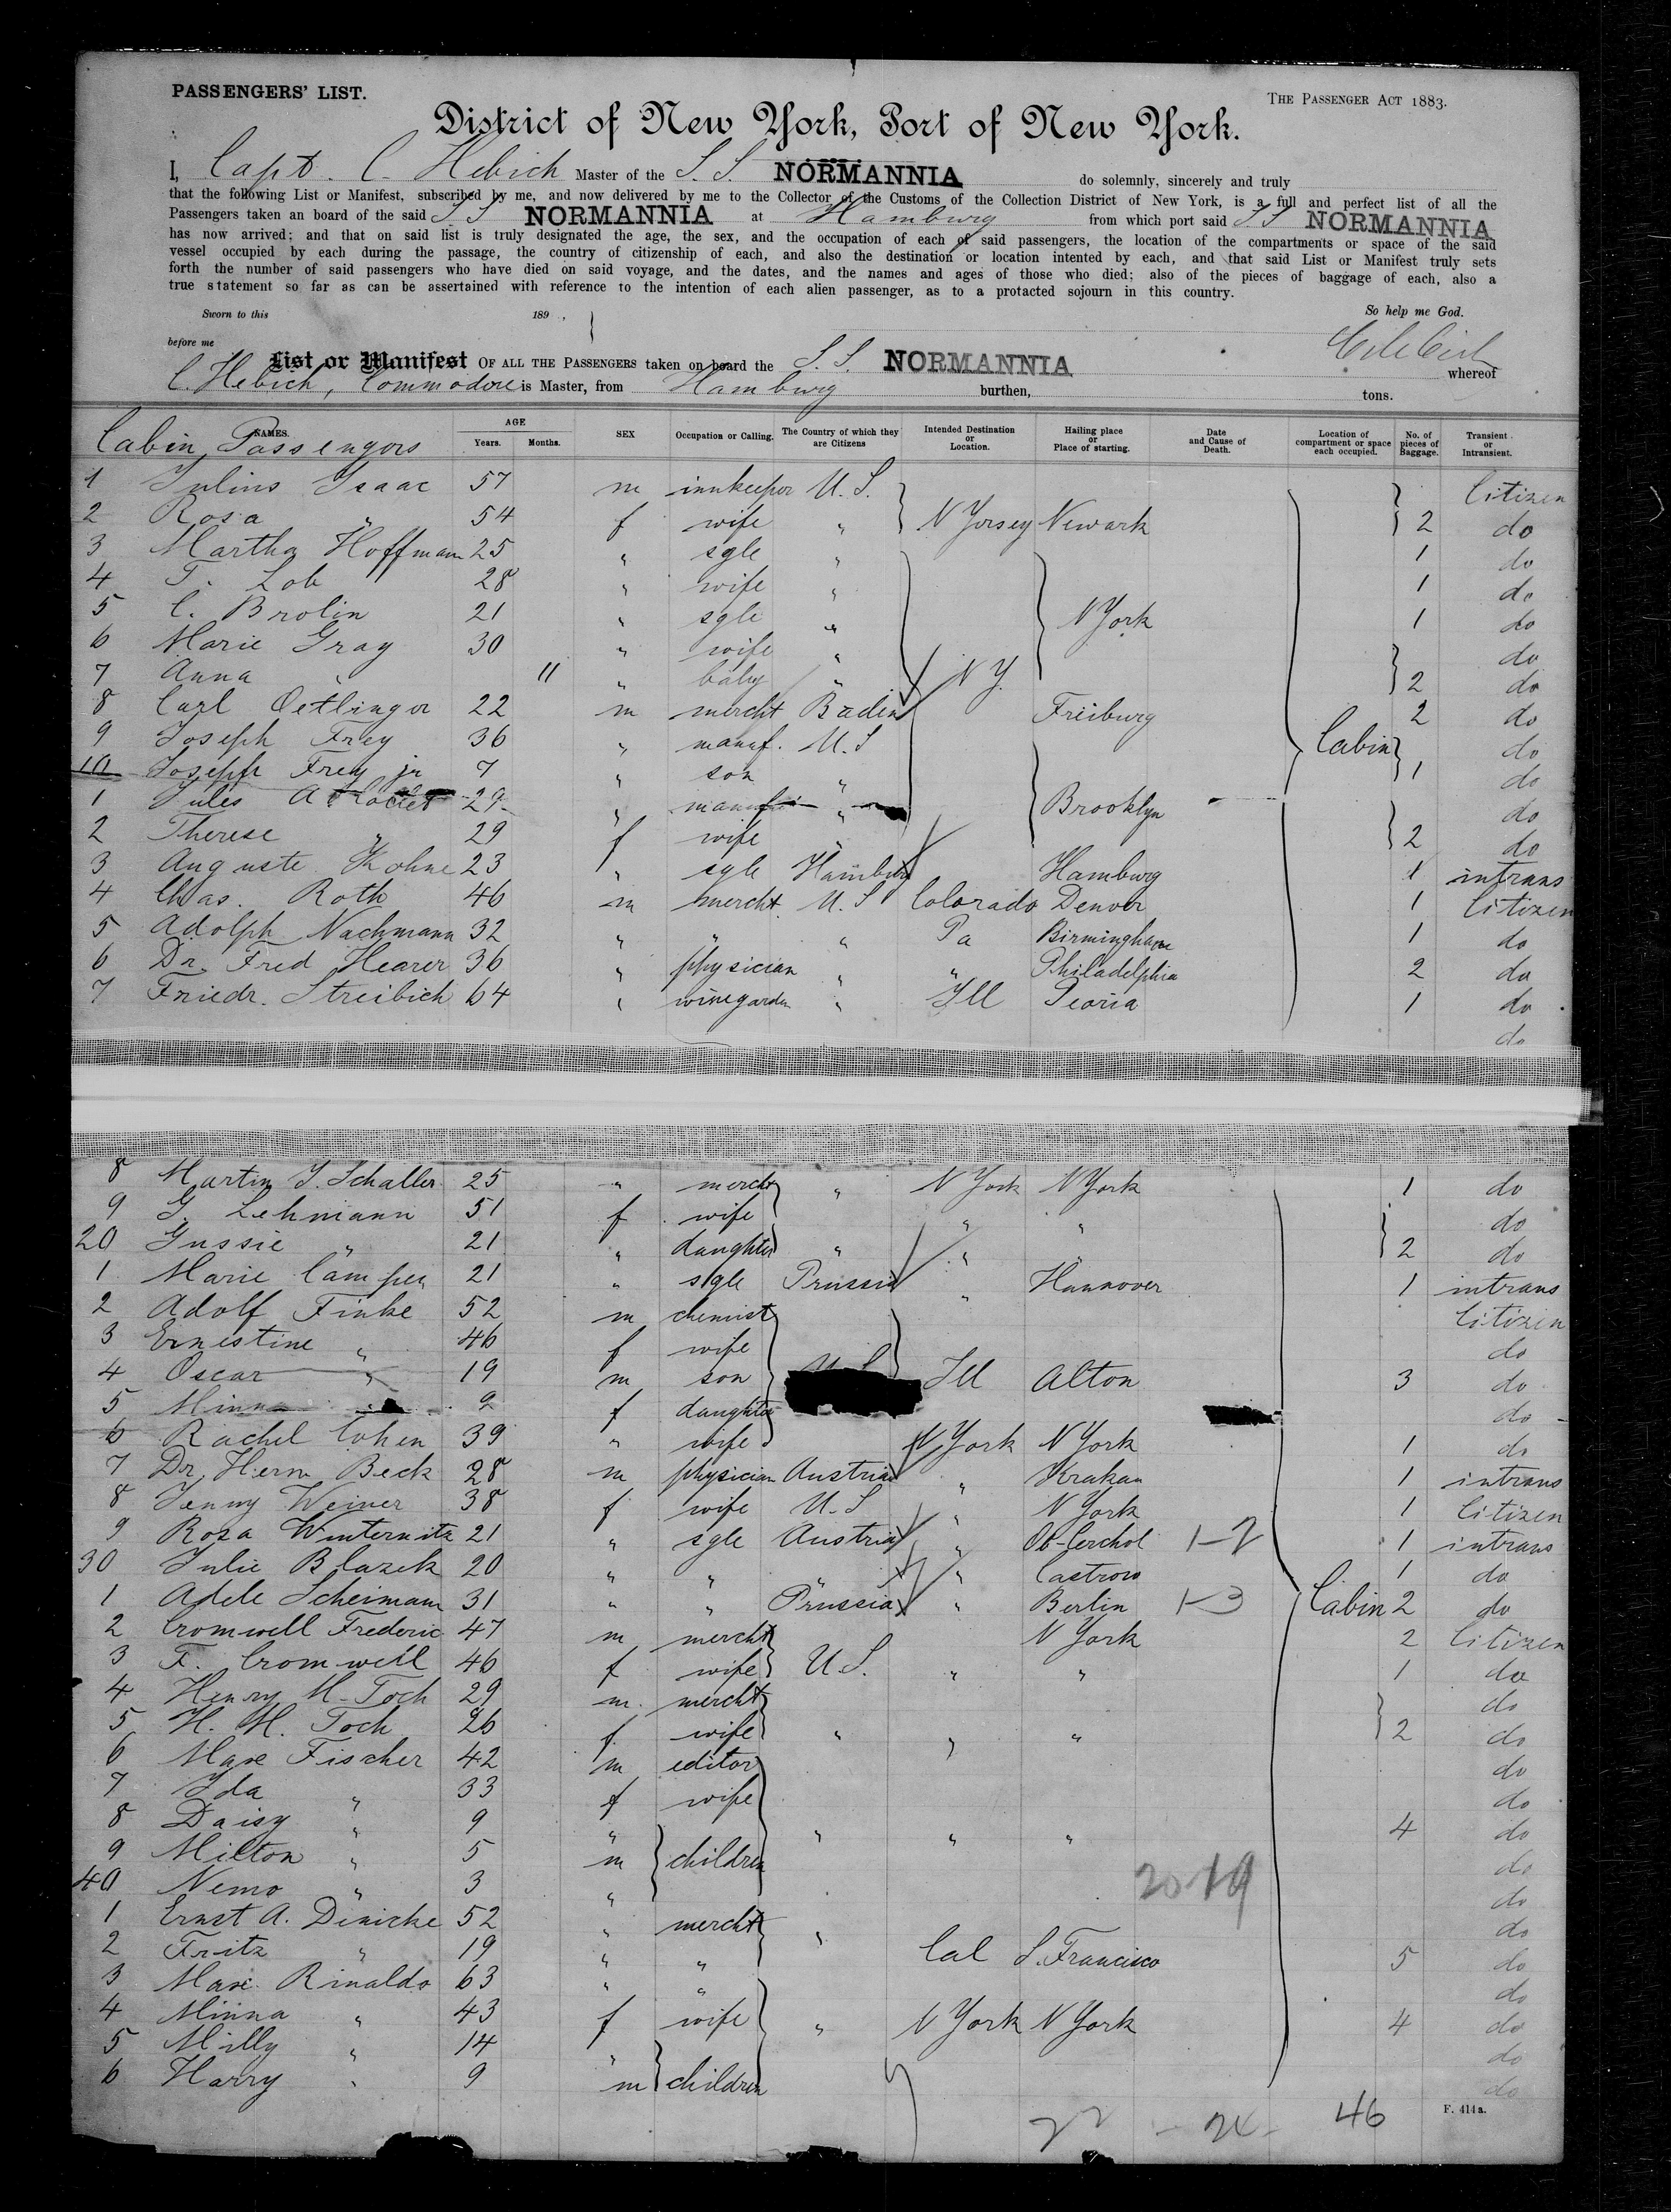 PASSENGERS' LIST.
THE PASSENGER ACT 1883.
District of New York, Port of New York.
I, Capt. C. Hebich Master of the S. S. NORMANNIA do solemnly, sincerely and truly
that the following List or Manifest, subscribed by me, and now delivered by me to the Collector of the Customs of the Collection District of New York, is a full and perfect list of all the
Passengers taken an board of the said S S NORMANNIA at Hamburg from which port said S. S NORMANNIA
has now arrived; and that on said list is truly designated the age, the sex, and the occupation of each of said passengers, the location of the compartments or space of the said
vessel occupied by each during the passage, the country of citizenship of each, and also the destination or location intented by each, and that said List or Manifest truly sets
forth the number of said passengers who have died on said voyage, and the dates, and the names and ages of those who died; also of the pieces of baggage of each, also a
true statement so far as can be assertained with reference to the intention of each alien passenger, as to a protacted sojourn in this country.
Sworn to this 189 , So help me God.
before me
List or Manifest OF ALL THE PASSENGERS taken on board the S. S. NORMANNIA whereof
C. Hebich, Commodore is Master, from Hamburg burthen, tons.
NAMES. AGE Years. Months. SEX Occupation or Calling. The Country of which they are Citizens Intended Destination or Location. Hailing place or Place of starting. Date and Cause of Death. Location of compartment or space each occupied. No. of pieces of Baggage. Transient or Intransient.
Cabin Passengers
1 Julius Isaac 57 m innkeeper U. S. Citizen
2 Rosa " 54 f wife " N Yersey Newark 2 do
3 Martha Hoffmann 25 " sgle " 1 do
4 T. Lob 28 " wife " 1 do
5 C. Brolin 21 " sgle " N York 1 do
6 Marie Gray 30 " wife " do
7 Anna " 11 " baby " N Y. 2 do
8 Carl Oetlinger 22 m mercht Baden Freiburg 2 do
9 Joseph Frey 36 " manuf. U. S Cabin do
10 Joseph Frey jr 7 " son " 1 do
1 Jules 29 " " Brooklyn do
2 Therese " 29 f wife " 2 do
3 Auguste Kohne 23 " sgle Hamburg Hamburg 1 intrans
4 Chas. Roth 46 m mercht. U. S Colorado Denver 1 Citizen
5 Adolph Nachmann 32 " " " Pa Birmingham 1 do
6 Dr. Fred Hearer 36 " physician " " Philadelphia 2 do
7 Friedr. Streibich 64 " winegarden " Ill Peoria 1 do
do
8 Martin J. Schaller 25 " mercht " N York N York 1 do
9 G. Lehmann 51 f wife " " do
20 Gussie " 21 " daughter " " 2 do
1 Marie Campen 21 " sgle Prussia " Hannover 1 intrans
2 Adolf Finke 52 m chemist Citizen
3 Ernestine " 46 f wife do
4 Oscar " 19 m son U. S Ill Alton 3 do
5 Minna 9 f daughter do
6 Rachel Cohen 39 " wife N York N York 1 do
7 Dr. Herm Beck 28 m physician Austria " Krakau 1 intrans
8 Jenny Weiner 38 f wife U. S " N York 1 Citizen
9 Rosa Winternitz 21 " sgle Austria " 1 intrans
30 Julie Blazek 20 " " " " Castrow 1 do
1 Adele Scheimann 31 " " Prussia " Berlin Cabin 2 do
2 Cromwell Frederic 47 m mercht N York 2 Citizen
3 F. Cromwell 46 f wife U. S. " " 1 do
4 Henry M. Toch 29 m mercht do
5 H. M. Toch 26 f wife " " " 2 do
6 Max Fischer 42 m editor do
7 Ida " 33 f wife do
8 Daisy " 9 " " " " 4 do
9 Milton " 5 m children do
40 Nemo " 3 " 20 19 do
1 Ernst A. Denicke 52 " mercht " do
2 Fritz " 19 " " Cal S. Francisco 5 do
3 Max Rinaldo 63 " " do
4 Minna " 43 f wife " N York N York 4 do
5 Milly " 14 " do
6 Harry " 9 m children do
46
F. 414a.